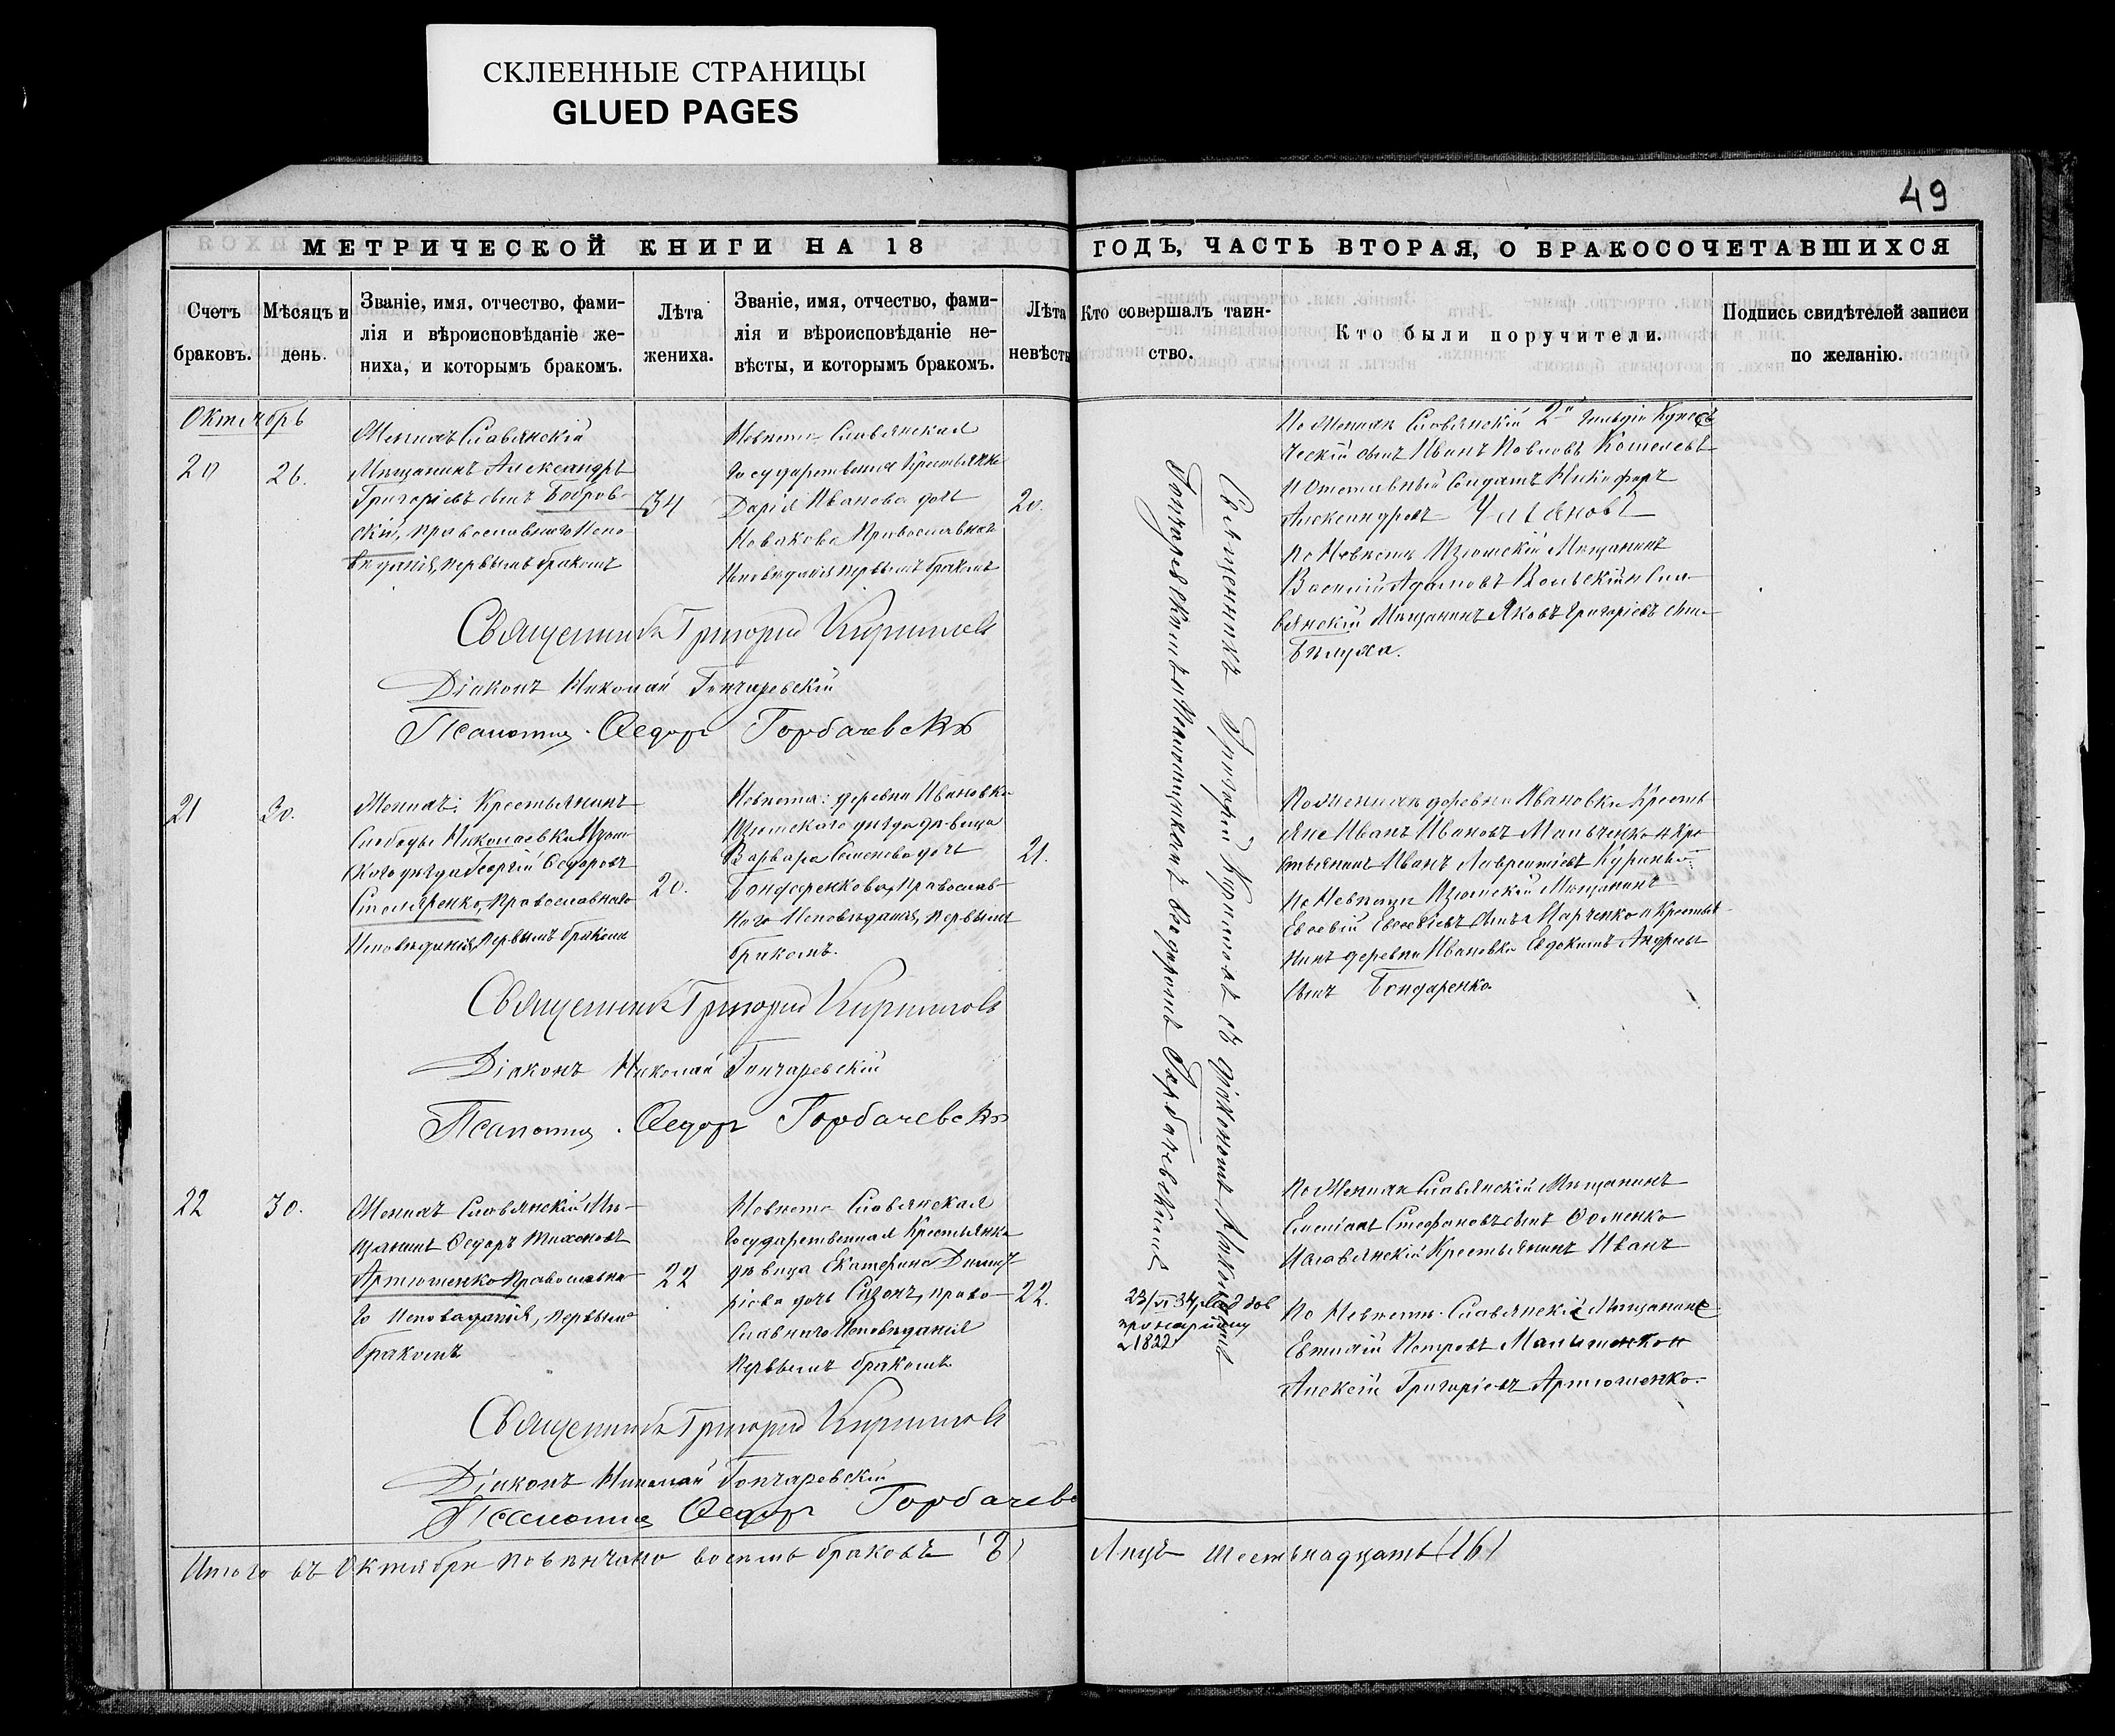 СКЛЕЕННЫЕ СТРАНИЦЫ
GLUED PAGES
49
МЕТРИЧЕСКОЙ КНИГИ НА 18
ГОДЪ, ЧАСТЬ ВТОРАЯ, О БРАКОСОЧЕТАВШИХСЯ
Счетъ
браковъ.
Мѣсяцъ и
день.
Званіе, имя, отчество, фами-
лія и вѣроисповѣданіе же-
ниха, и которымъ бракомъ.
Лѣта
жениха.
Званіе, имя, отчество, фами-
лія и вѣроисповѣданіе не-
вѣсты, и которымъ бракомъ.
Лѣта
невѣсты
Кто совершалъ таин-
ство.
Кто были поручители.
Подпись свидѣтелей записи
по желанію.
Октябрь
20
26.
Женихъ Славянскій
Мѣщанинъ Александръ
Григоріевъ сынъ Бобров-
скій, православнаго испо-
вѣданія, первымъ бракомъ
34
Невѣста Славянская
Государственная Крестьянка
Дарія Иванова дочь
Новакова Православнаго
исповѣданія первымъ бракомъ
20.
По Женихѣ Славянскій 2й гильдіи Купе-
ческій сынъ Иванъ Павловъ Кошелевъ
и Отставный Солдатъ Никифоръ
Александровъ
По Невѣстѣ Изюмскій Мѣщанинъ
Василій Адамовъ и Сла-
вянскій Мѣщанинъ Яковъ Григоріевъ сынъ
Бѣлуха.
Священникъ Григорій Кириловъ
Діаконъ Николай Гончаревскій
Псаломщ. Ѳедоръ Горбачевскій
21
30.
Женихъ: Крестьянинъ
Слободы Николаевки Изюм-
скаго уѣзда Георгій Ѳедоровъ
Столяренко, Православнаго
Исповѣданія, первымъ бракомъ
20.
Невѣста: деревни Ивановки
Изюмскаго уѣзда дѣвица
Варвара Семенова дочь
Бондаренкова, православ-
наго Исповѣданія, первымъ
бракомъ.
21.
По Женихѣ деревни Ивановки Кресть-
яне Иванъ Ивановъ Мальченко и Кре-
стьянинъ Иванъ Лаврентіевъ
По Невѣстѣ Изюмскій Мѣщанинъ
Евсевій Евсевіевъ сынъ Марченко и Крестья-
нинъ деревни Ивановки Евдокимъ Андреевъ
сынъ Бондаренко.
Священникъ Григорій Кириловъ
Діаконъ Николай Гончаревскій
Псаломщ. Ѳедоръ Горбачевскій
22
30.
Женихъ Славянскій Мѣ-
щанинъ Ѳедоръ Тихоновъ
Артюшенко Православна-
го Исповѣданія, первымъ
бракомъ
22
Невѣста Славянская
Государственная Крестьянка
дѣвица Екатерина Димит-
ріева дочь Сизонъ, право-
славнаго Исповѣданія
первымъ бракомъ.
22.
По Женихѣ Славянскій Мѣщанинъ
Стефановъ сынъ Ѳоменко
и Славянскій Крестьянинъ Иванъ
По Невѣстѣ Славянскій Мѣщанинъ
Евтихій Петровъ
Алексѣй Григоріевъ Артюшенко.
Священникъ Григорій Кириловъ
Діаконъ Николай Гончаревскій
Псаломщ Ѳедоръ Горбачевс
Священникъ Григорій Кириловъ съ діакономъ Николаемъ
Гончаревскимъ и псаломщикомъ Ѳедоромъ Горбачевскимъ
1822
Итого въ Октябрѣ повѣнчано восемь браковъ (8)
Лицъ шестьнадцать (16)